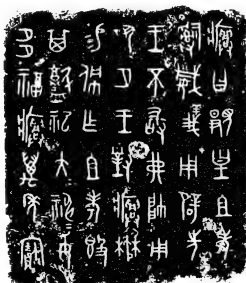 㾓曰覭皇且考
𤔲威義用辟先
王不敢弗帥用
夙夕王對㾓楙
易佩乍且考𣪘
其盩祀大神妥
多福㾓萬年寶